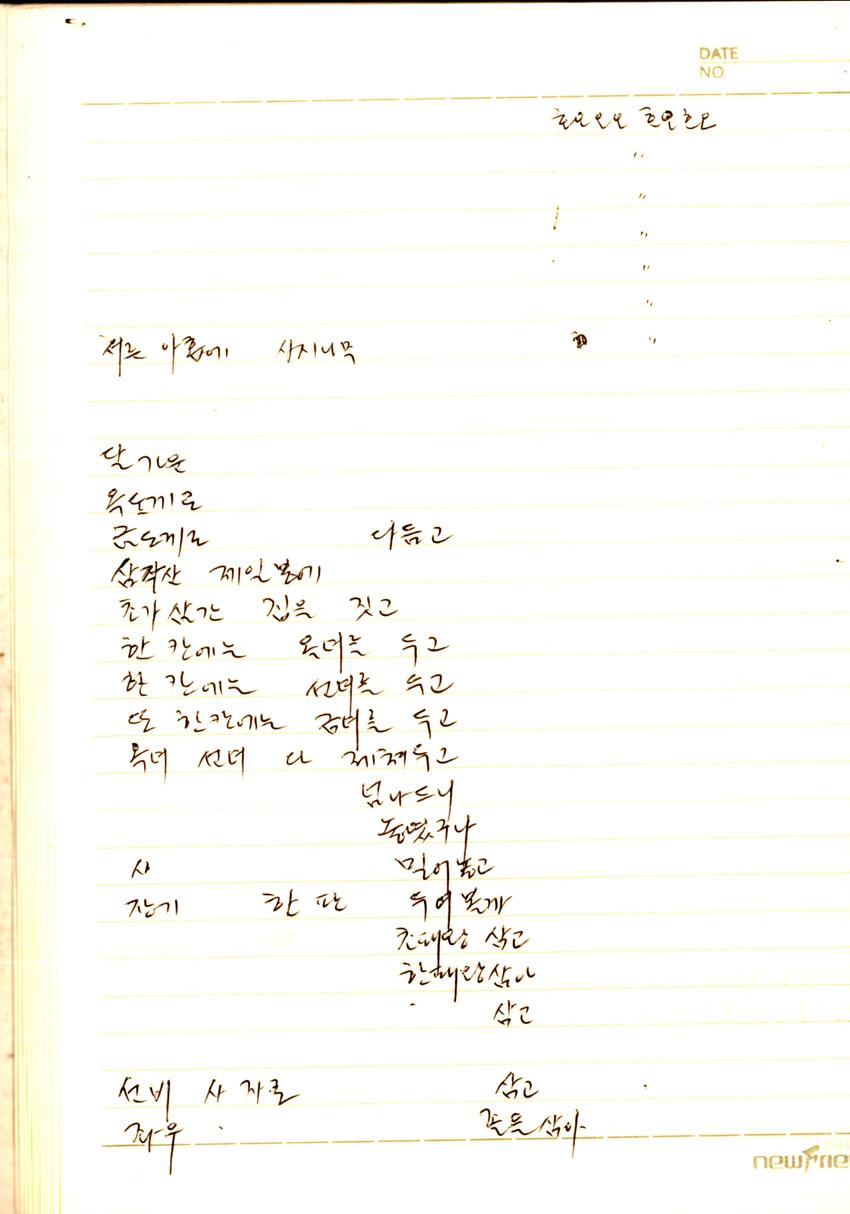 DATE
NO.
호오오오 호오호오
"
"
"
"
"
"
서른 아홉에 사지니묵
달 가운
옥도끼로
금도끼로 다듬고
삼각산 제일봉에
초가 삼간 집을 짓고
한 칸에는 옥녀를 두고
한 칸에는 선녀를 두고
또 한칸에는 금녀를 두고
옥녀 선녀 다 제쳐두고
넘나드니
놀였구나
사 밀어놓고
장기 한 판 두어볼까
초패왕 삼고
한패왕 삼아
삼고
선비 사 자로 삼고
좌우 졸을 삼아
newFrie